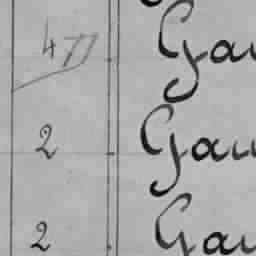 477 Gau
2 Gau
2 Gau